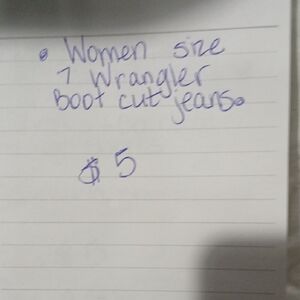 • Women size
7 Wrangler
Boot cut jeans.
$5